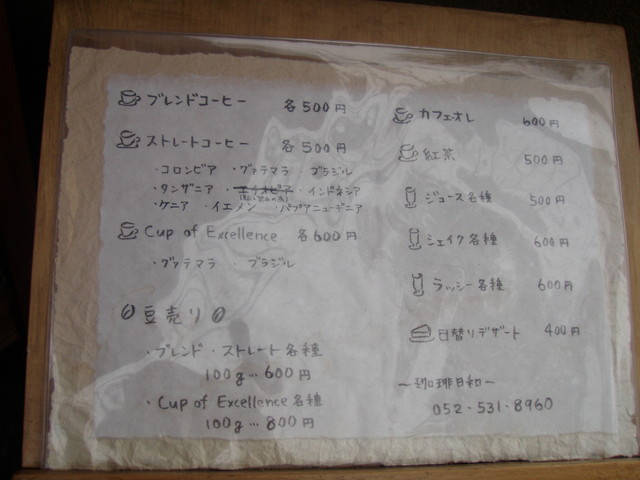 ブレンドコーヒー 各500円
ストレートコーヒー 各500円
・コロンビア ・グァテマラ ・ブラジル
・タンザニア ・エチオピア ・インドネシア
・ケニア ・イエメン ・パプアニューギニア
Cup of Excellence 各600円
・グァテマラ ・ブラジル
豆売り
・ブレンド・ストレート各種
100g…600円
・Cup of Excellence各種
100g…800円
カフェオレ 600円
紅茶 500円
ジュース各種 500円
シェイク各種 600円
ラッシー各種 600円
日替りデザート 400円
〜珈琲日和〜
052・531・8960